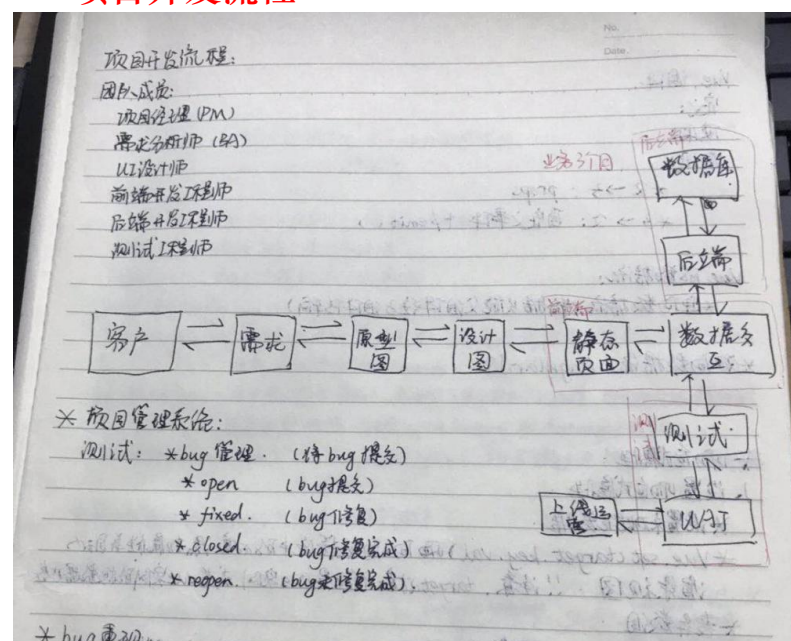 项目开发流程
No.
Date.
项目开发流程:
团队成员:
项目经理 (PM)
需求分析师 (BA)
UI设计师
前端开发工程师
后端开发工程师
测试工程师
业务介面
后端
数据库
后端
客户
需求
原型图
设计图
静态页面
数据交互
测试
测试
上线运营
UAT
* 项目管理系统:
测试: *bug 管理. (将bug提交)
* open (bug提交)
* fixed. (bug修复)
* closed (bug修复完成)
* reopen. (bug未修复完成).
* bug重现